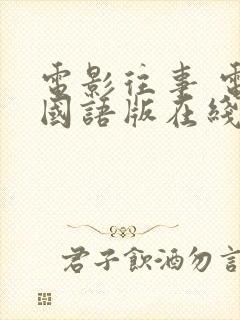 電影往事 電
國語版在綫
君子飲酒勿言